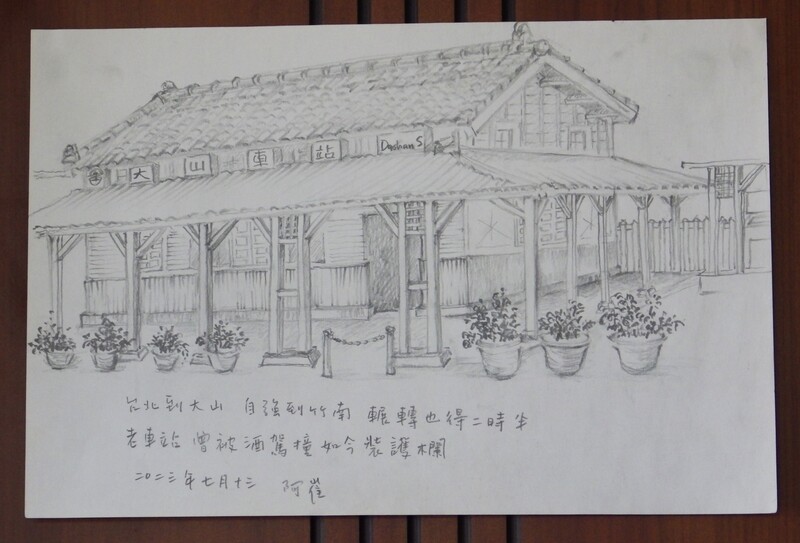 大山車站 Dashan S
台北到大山 自強到竹南 輾轉也得二時半
老車站 曾被酒駕撞如今裝護欄
二〇二三年七月十三 阿崔